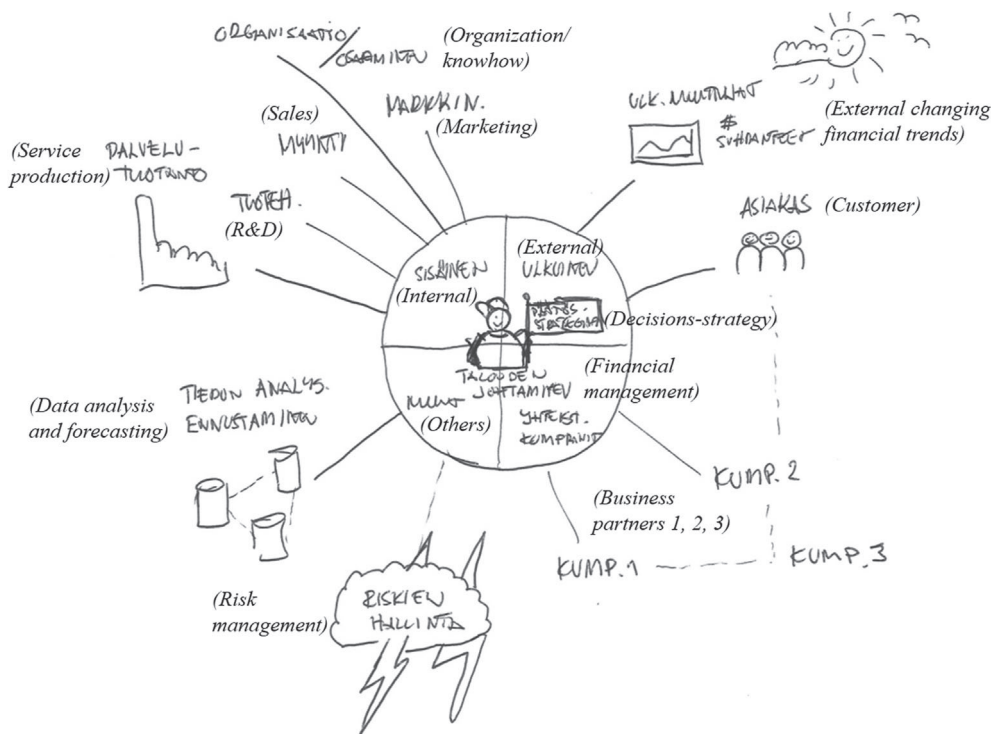 ORGANISAATIO/
OSAAMINEN
(Organization/
knowhow)
MARKKIN.
(Marketing)
(Sales)
MYYNTI
ULK. MUUTTUJAT
$
SUHDANTEET
(External changing
financial trends)
(Service
production)
PALVELU-
TUOTANTO
TUOTEH.
(R&D)
ASIAKAS (Customer)
SISÄINEN
(Internal)
(External)
ULKOINEN
PÄÄTÖS-
STRATEGIA
(Decisions-strategy)
TALOUDEN
JOHTAMINEN
(Financial
management)
MUUT
(Others)
YHTEIST.
KUMPPANIT
(Data analysis
and forecasting)
TIEDON ANALYS.
ENNUSTAMINEN
(Business
partners 1, 2, 3)
KUMP. 2
KUMP. 1
KUMP. 3
(Risk
management)
RISKIEN
HALLINTA